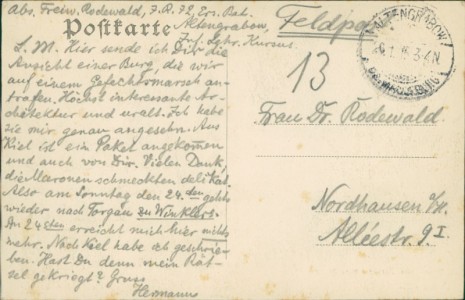 Abs. Freiw. Rodewald, I. R. 72, Ers. Bat.
Altengrabow,
Postkarte
Feldpost
L. M. Hier sende ich Dir die
Ansicht einer Burg, die wir
auf einem Gefechtsmarsch an-
trafen. Höchst interessante Ar-
chitektur und uralt. Ich habe
sie mir genau angesehn. Aus
Kiel ist ein Paket angekommen
und auch von Dir. Vielen Dank,
die Maronen schmeckten delikat.
Also am Sonntag den 24. gehts
wieder nach Torgau zu Winklers.
Am 24sten erreicht mich hier nichts
mehr. Nach Kiel habe ich geschrie-
ben. Hast Du denn mein Rät-
sel gekriegt? Gruss
Hermann
ALTENGRABOW
13
Frau Dr. Rodewald.
Nordhausen a/H.
Alléestr. 9 I